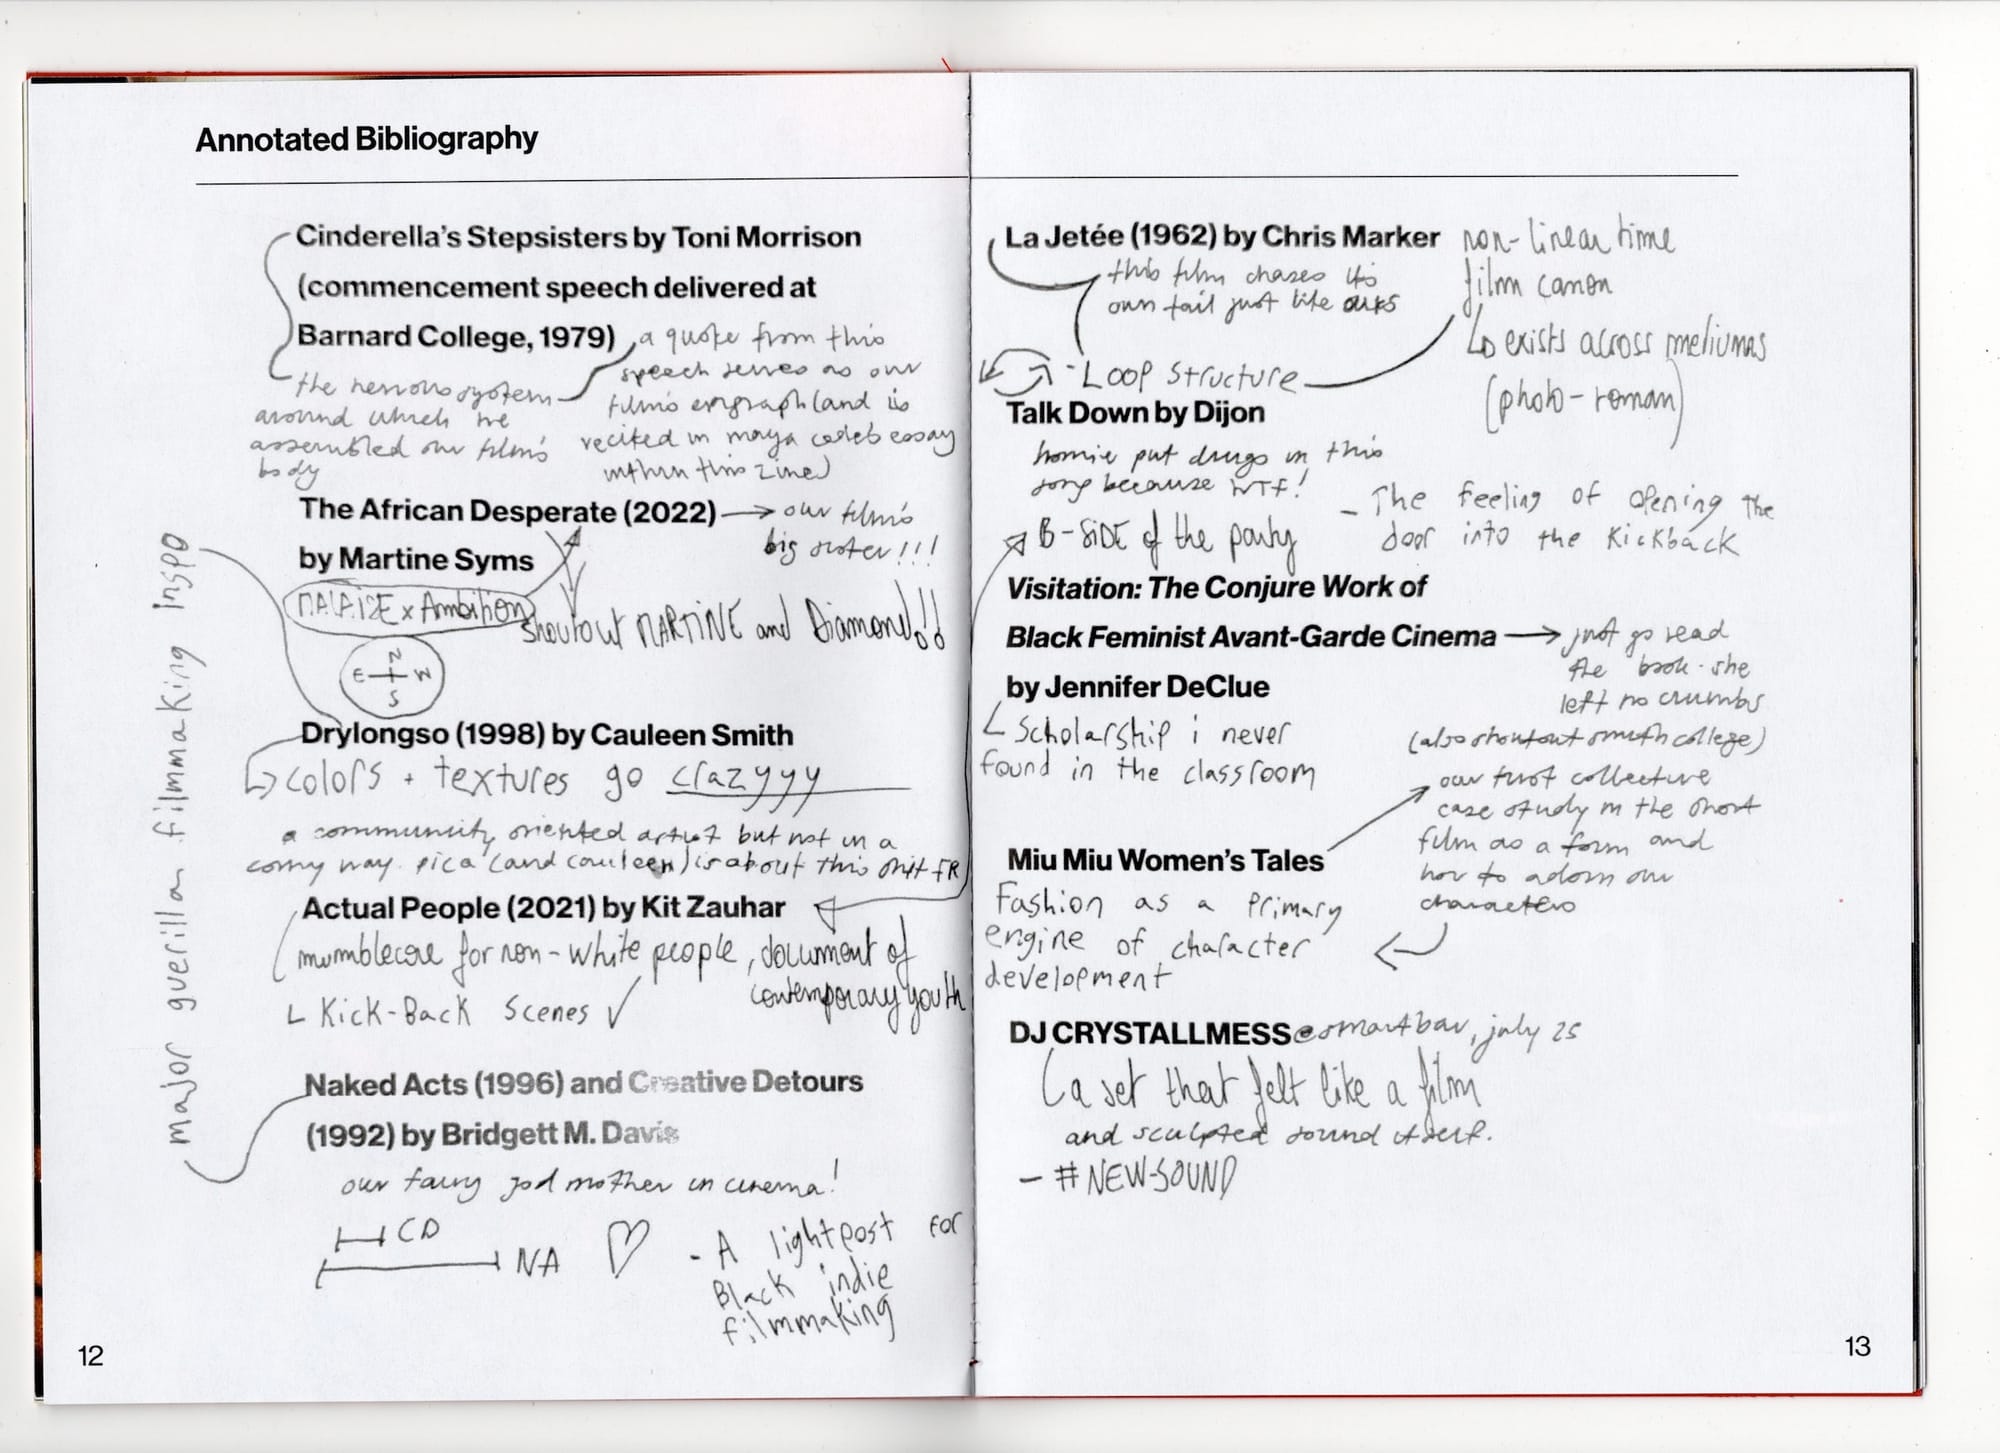 Annotated Bibliography
Cinderella's Stepsisters by Toni Morrison
(commencement speech delivered at
Barnard College, 1979)
the nervous system
around which we
assembled our film's
body
a quote from this
speech serves as our
film's epigraph (and is
recited in maya cade's essay
within this zine)
The African Desperate (2022)
by Martine Syms
our film's
big sister!!!
MALAISE x Ambition
shoutout MARTINE and Diamond!!
N
E W
S
major guerilla filmmaking inspo
Drylongso (1998) by Cauleen Smith
colors + textures go crazyyy
a community oriented artist but not in a
corny way. pica (and cauleen) is about this shit FR
Actual People (2021) by Kit Zauhar
mumblecore for non-white people, document of
contemporary youth
Kick-Back Scenes ✓
Naked Acts (1996) and Creative Detours
(1992) by Bridgett M. Davis
our fairy god mother in cinema!
CD
NA
- A lightpost for
Black indie
filmmaking
12
La Jetée (1962) by Chris Marker
this film chases its
own tail just like ours
- Loop Structure
non-linear time
film canon
exists across mediums
(photo-roman)
Talk Down by Dijon
homie put drugs in this
song because WTF!
B-SIDE of the party
- The feeling of opening the
door into the kickback
Visitation: The Conjure Work of
Black Feminist Avant-Garde Cinema
by Jennifer DeClue
just go read
the book. she
left no crumbs
(also shoutout smith college)
Scholarship i never
found in the classroom
Miu Miu Women's Tales
our first collective
case study in the short
film as a form and
how to adorn our
characters
Fashion as a primary
engine of character
development
DJ CRYSTALLMESS @ smartbar, july 25
a set that felt like a film
and sculpted sound itself.
- #NEW-SOUND
13